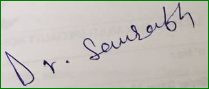 Dr. Saurabh